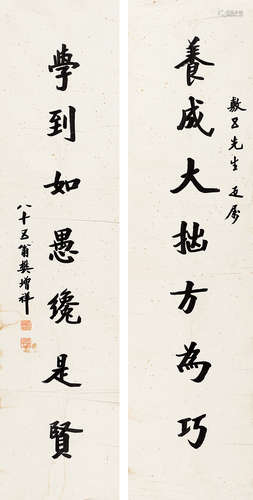 敷五先生正屬
養成大拙方為巧
學到如愚纔是賢
八十五翁樊增祥